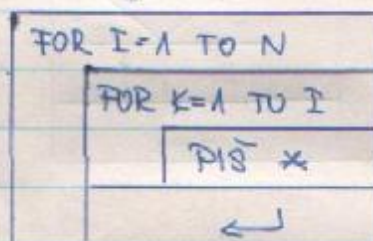 FOR I=1 TO N
FOR K=1 TO I
PIŠ *
↵